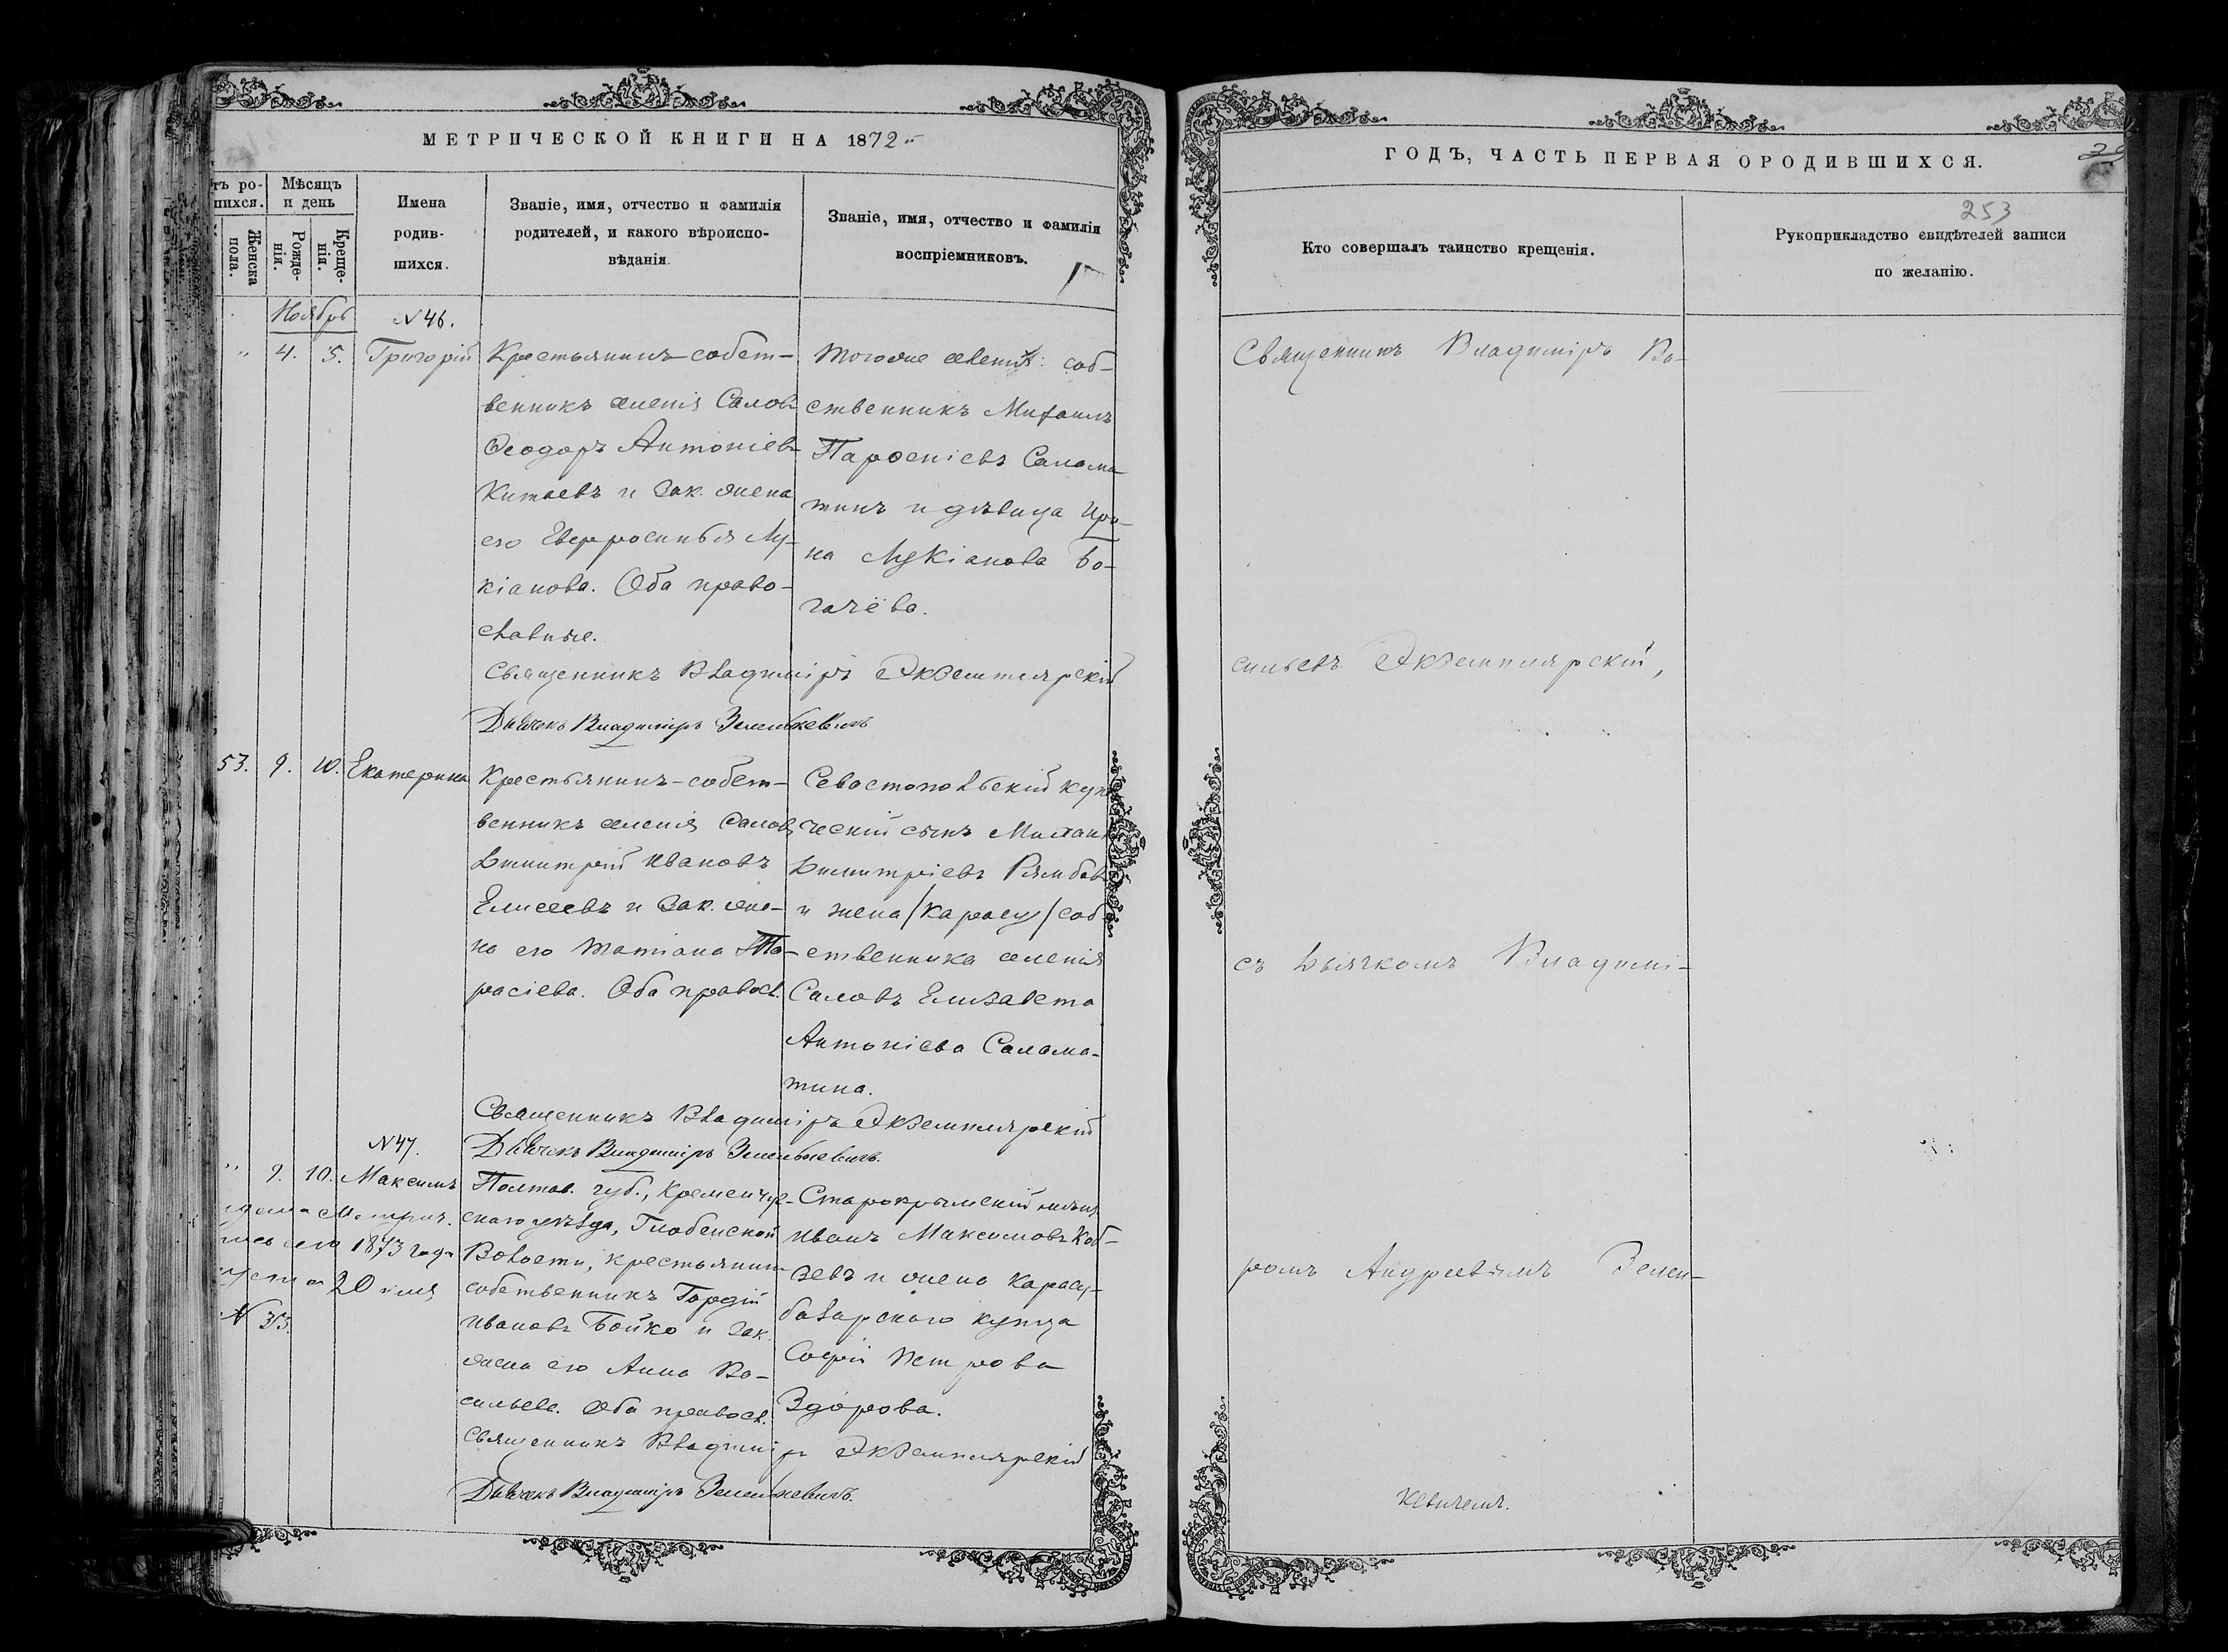 МЕТРИЧЕСКОЙ КНИГИ НА 1872
тъ ро-
шихся.
Женска
пола.
Мѣсяцъ
и день
Рожде-
нія.
Креще-
нія.
Имена
родив-
шихся.
Званіе, имя, отчество и фамилія
родителей, и какого вѣроиспо-
вѣданія.
Званіе, имя, отчество и фамилія
воспріемниковъ.
Ноябрь
N 46.
4. 5. Григорій
Крестьянинъ-собст-
венникъ селенія Салов
Ѳеодоръ Антоніевъ
Китаевъ и зак. жена
его Евфросинья Лу-
кіанова. Оба право-
славные.
Тогоже селенія: соб-
ственникъ Михаилъ
Парѳеніевъ Салома-
тинъ и дѣвица Ири-
на Лукіанова Бо-
гачёва.
Священникъ Владиміръ Экземплярскій
Дьячекъ Владиміръ Зелинкевичъ
53. 9. 10. Екатерина
Крестьянинъ-собст-
венникъ селенія Саловъ
Димитрій Ивановъ
Елисеевъ и зак. же-
на его Татіана Та-
расіева. Оба правосл.
Севастопольскій купе
ческій сынъ Михаилъ
Димитріевъ
и жена /Карасу/ соб-
ственника селенія
Саловъ Елизавета
Антоніева Салома-
тина.
Священникъ Владиміръ Экземплярскій
Дьячекъ Владиміръ Зелинкевичъ.
N 47.
9. 10. Максимъ
Полтав. губ., Кременчуг-
скаго уѣзда, Глобенской
Волости, крестьянинъ
собственникъ Гордій
Ивановъ Бойко и зак.
жена его Анна Ва-
сильева. Оба правосл.
Старокрымскій мѣщ
Иванъ Максимовъ Коб-
зевъ и жена Карасу-
базарскаго купца
Софія Петрова
Здорова.
Метрич.
1873 года
20 дня
N 313.
Священникъ Владиміръ Экземплярскій
Дьячекъ Владиміръ Зелинкевичъ.
ГОДЪ, ЧАСТЬ ПЕРВАЯ О РОДИВШИХСЯ.
253
Кто совершалъ таинство крещенія.
Рукоприкладство свидѣтелей записи
по желанію.
Священникъ Владиміръ Ва-
сильевъ Экземплярскій,
съ Дьячкомъ Владимі-
ромъ Андреевымъ Зелен-
кевичемъ.